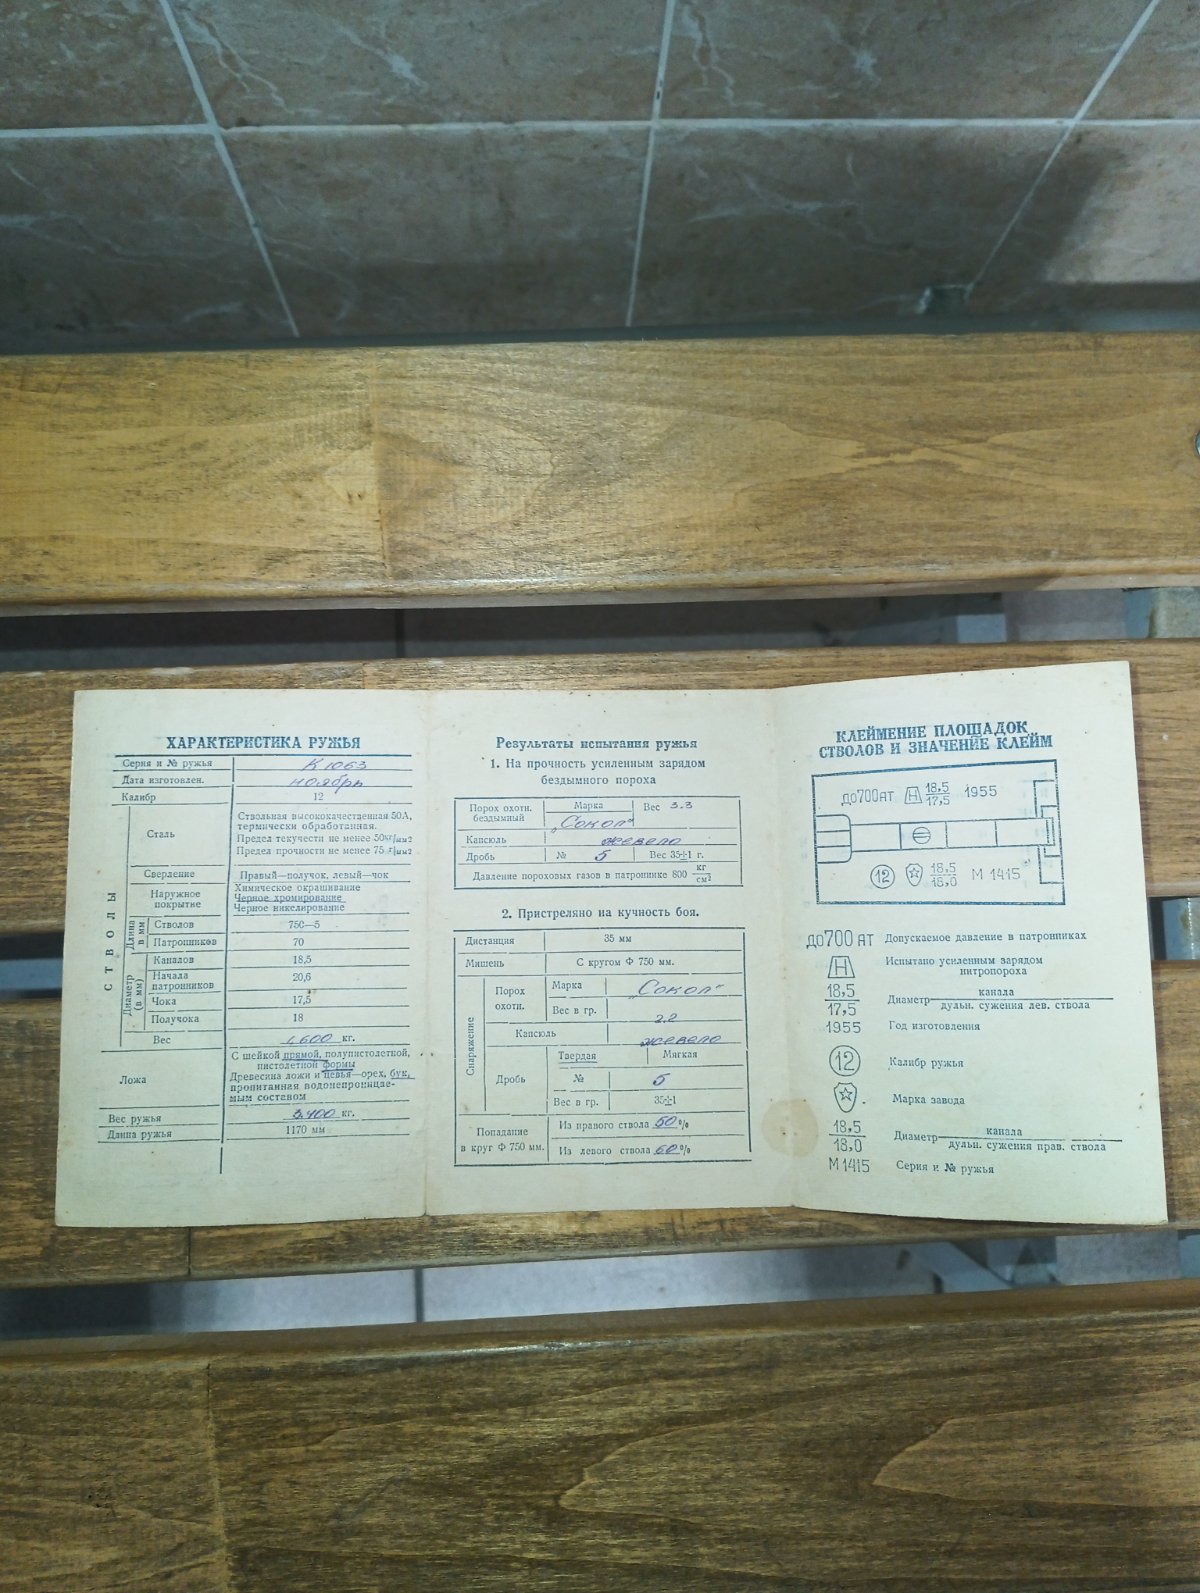 ХАРАКТЕРИСТИКА РУЖЬЯ
Серия и № ружья К1063
Дата изготовлен. ноябрь
Калибр 12
СТВОЛЫ
Сталь
Ствольная высококачественная 50А,
термически обработанная.
Предел текучести не менее 50кг/мм2
Предел прочности не менее 75 кг/мм2
Сверление Правый—получок, левый—чок
Наружное покрытие
Химическое окрашивание
Черное хромирование
Черное никелирование
Длина в мм
Стволов 750—5
Патронников 70
Диаметр (в мм)
Каналов 18,5
Начала патронников 20,6
Чока 17,5
Получока 18
Вес 1.600 кг.
Ложа
С шейкой прямой, полупистолетной,
пистолетной формы
Древесина ложи и цевья—орех, бук,
пропитанная водонепроницае-
мым составом
Вес ружья 3.400 кг.
Длина ружья 1170 мм
Результаты испытания ружья
1. На прочность усиленным зарядом
бездымного пороха
Порох охотн. бездымный Марка „Сокол" Вес 3.3
Капсюль жевело
Дробь № 5 Вес 35±1 г.
Давление пороховых газов в патроннике 800 кг/см2
2. Пристреляно на кучность боя.
Дистанция 35 мм
Мишень С кругом Ф 750 мм.
Снаряжение
Порох охотн.
Марка „Сокол"
Вес в гр. 2.2
Капсюль жевело
Дробь
Твердая Мягкая
№ 5
Вес в гр. 35±1
Попадание в круг Ф 750 мм.
Из правого ствола 50%
Из левого ствола 60%
КЛЕЙМЕНИЕ ПЛОЩАДОК
СТВОЛОВ И ЗНАЧЕНИЕ КЛЕЙМ
до700АТ Н 18,5/17,5 1955
12 18,5/18,0 М 1415
до700 АТ Допускаемое давление в патронниках
Н Испытано усиленным зарядом
нитропороха
18,5/17,5 Диаметр канала/дульн. сужения лев. ствола
1955 Год изготовления
12 Калибр ружья
Марка завода
18,5/18,0 Диаметр канала/дульн. сужения прав. ствола
М1415 Серия и № ружья